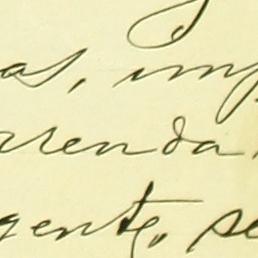 as, imp
rrenda.
gente, se